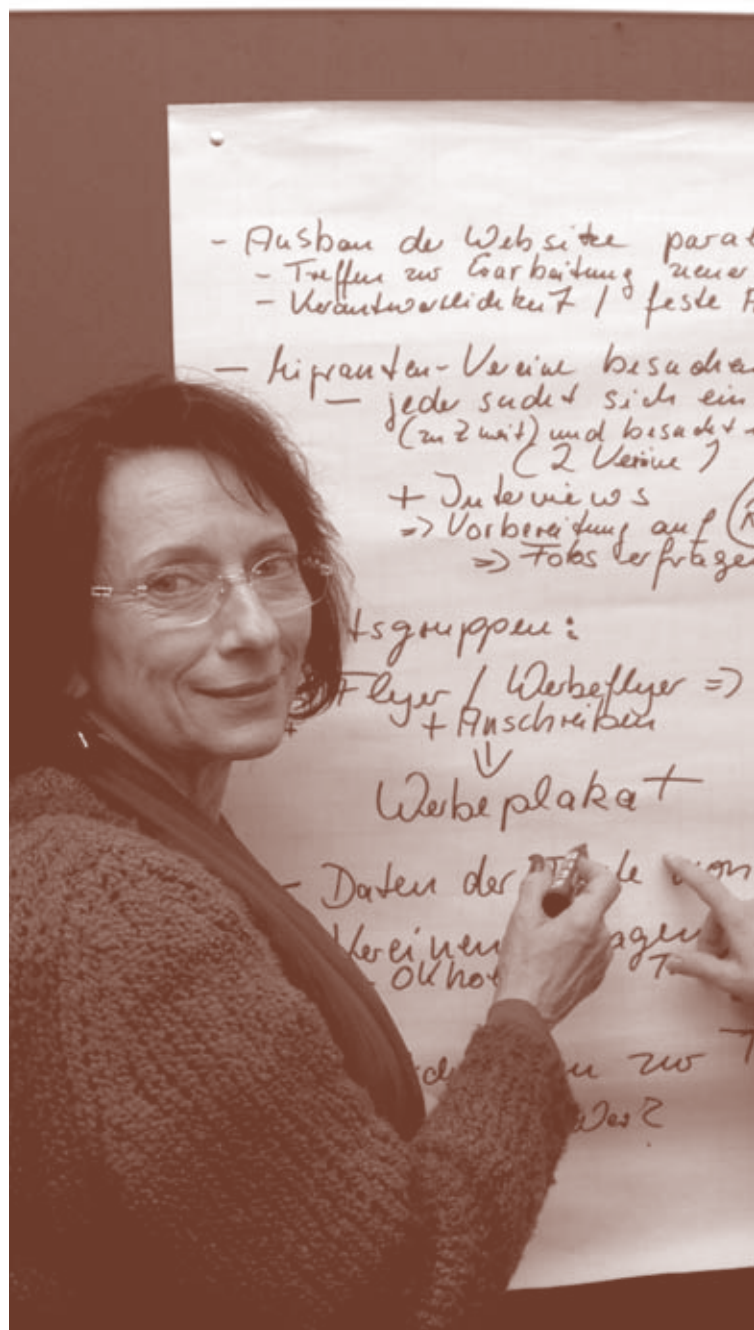 - Ausbau der Website parat
- Treffen zur Erarbeitung neuer
- Verantwortlichkeit / feste
- Migranten-Vereine besuchen
- jeder sucht sich ein
(zu zweit) und besucht
(2 Vereine)
+ Interviews
=> Vorbereitung auf
=> Fotos erfragen
tsgruppen:
Flyer / Werbeflyer =>
+ Anschreiben
Werbeplakat +
- Daten der von
Vereinen agen
zur
Wer?